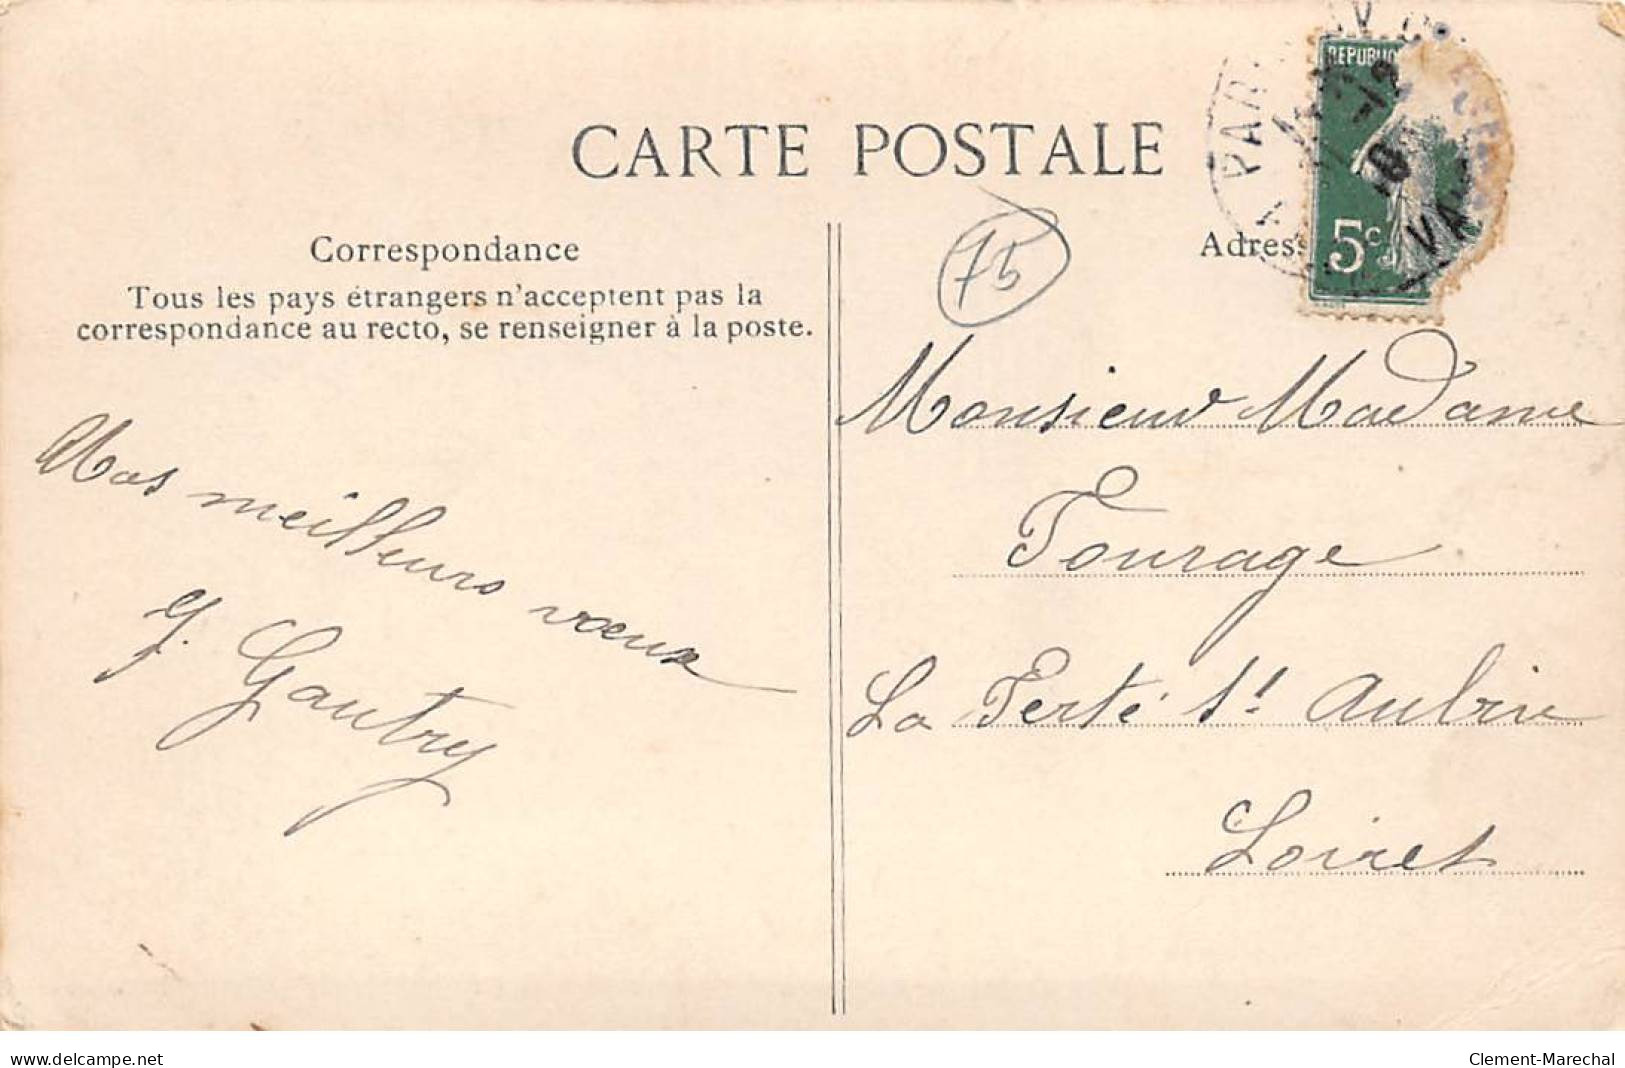 CARTE POSTALE
Correspondance
Tous les pays étrangers n'acceptent pas la
correspondance au recto, se renseigner à la poste.
Mes meilleurs vœux
J. Gautry
75
REPUBLIQ
5c
PARIS
VA
Adres
Monsieur Madame
Tourage
La Ferté St Aubin
Loiret
www.delcampe.net
Clement-Marechal